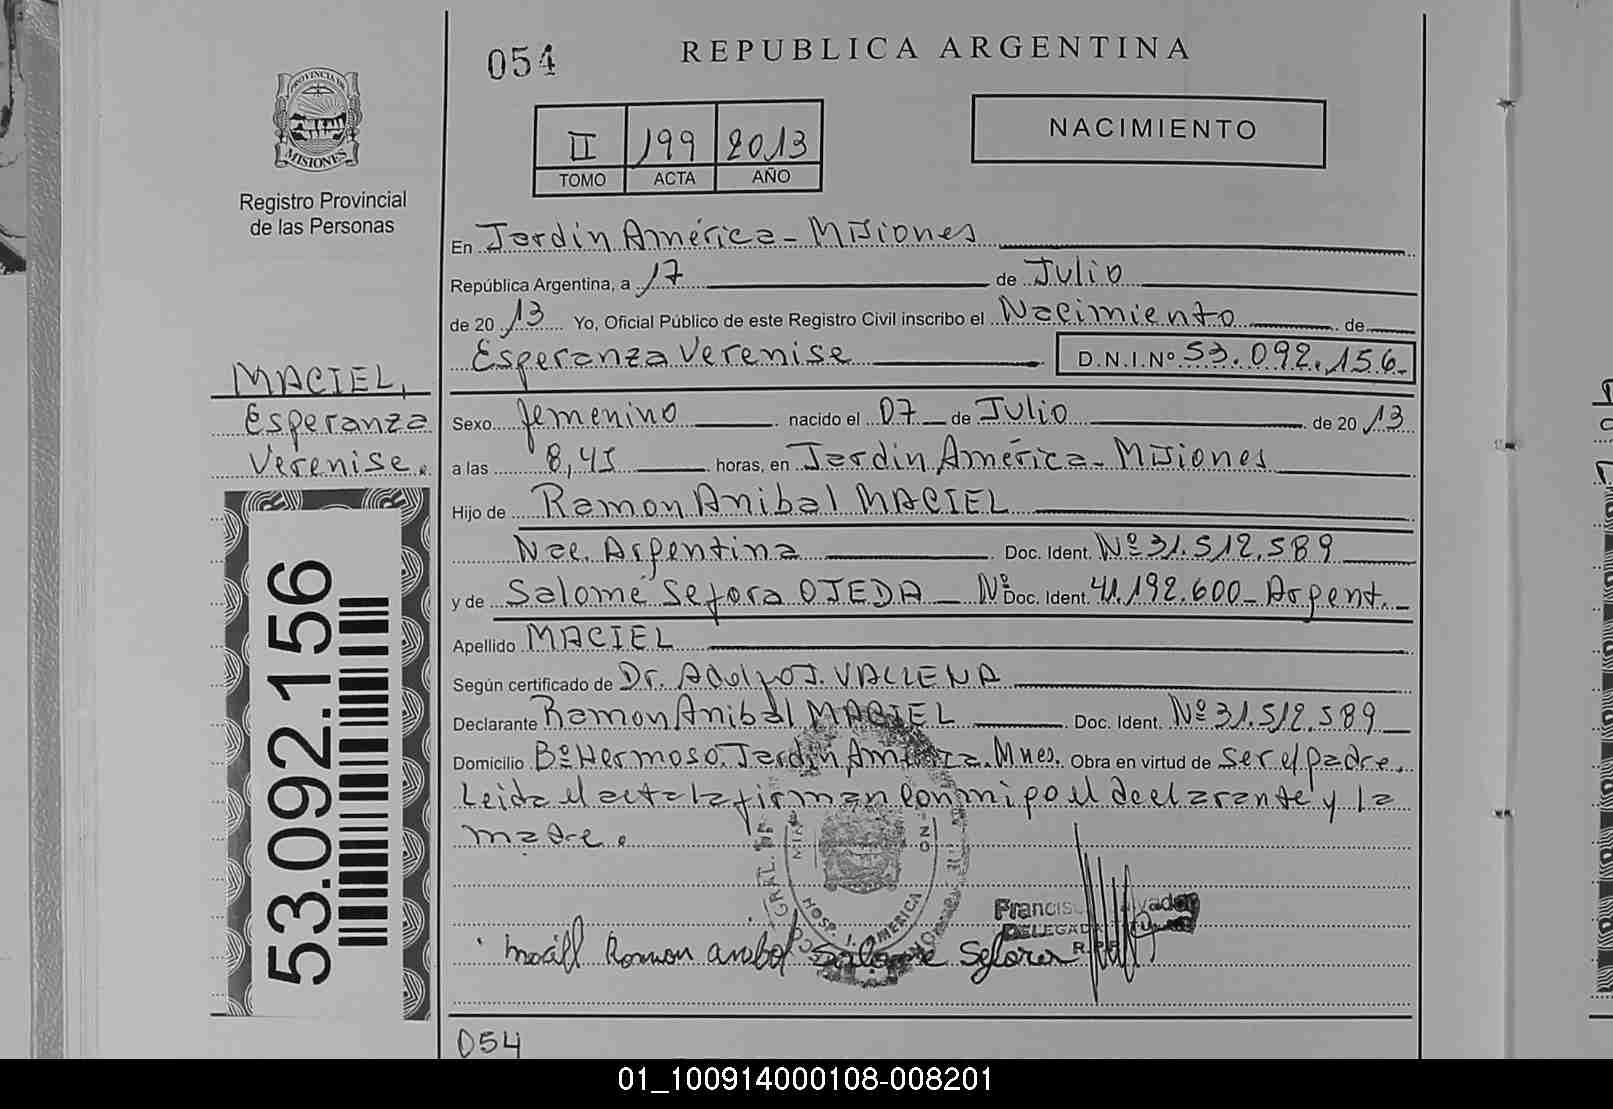 054
REPUBLICA ARGENTINA
PROVINCIA DE
MISIONES
Registro Provincial
de las Personas
II 199 2013
TOMO ACTA AÑO
NACIMIENTO
En Jardín América - Misiones
República Argentina, a 17 de Julio
de 20 13 Yo, Oficial Público de este Registro Civil inscribo el Nacimiento de
Esperanza Verenise D.N.I. Nº 53.092.156.
MACIEL,
Esperanza
Verenise.
Sexo femenino nacido el 07 de Julio de 20 13
a las 8,45 horas, en Jardín América - Misiones
Hijo de Ramon Anibal MACIEL
Nac. Argentina Doc. Ident. Nº 31.512.589
y de Salomé Sefora OJEDA Nº Doc. Ident. 41.192.600 - Argent. -
Apellido MACIEL
Según certificado de Dr. Adolfo J. VALLENA
Declarante Ramon Anibal MACIEL Doc. Ident. Nº 31.512.589
Domicilio Bº Hermoso. Jardín América. Mnes. Obra en virtud de ser el padre.
Leida el acta la firman conmigo el declarante y la
madre.
53.092.156
HOSP. J. AMERICA
Francisco
DELEGADO
R.P.P.
Ramon anibal Salome Sefora
054
01_100914000108-008201